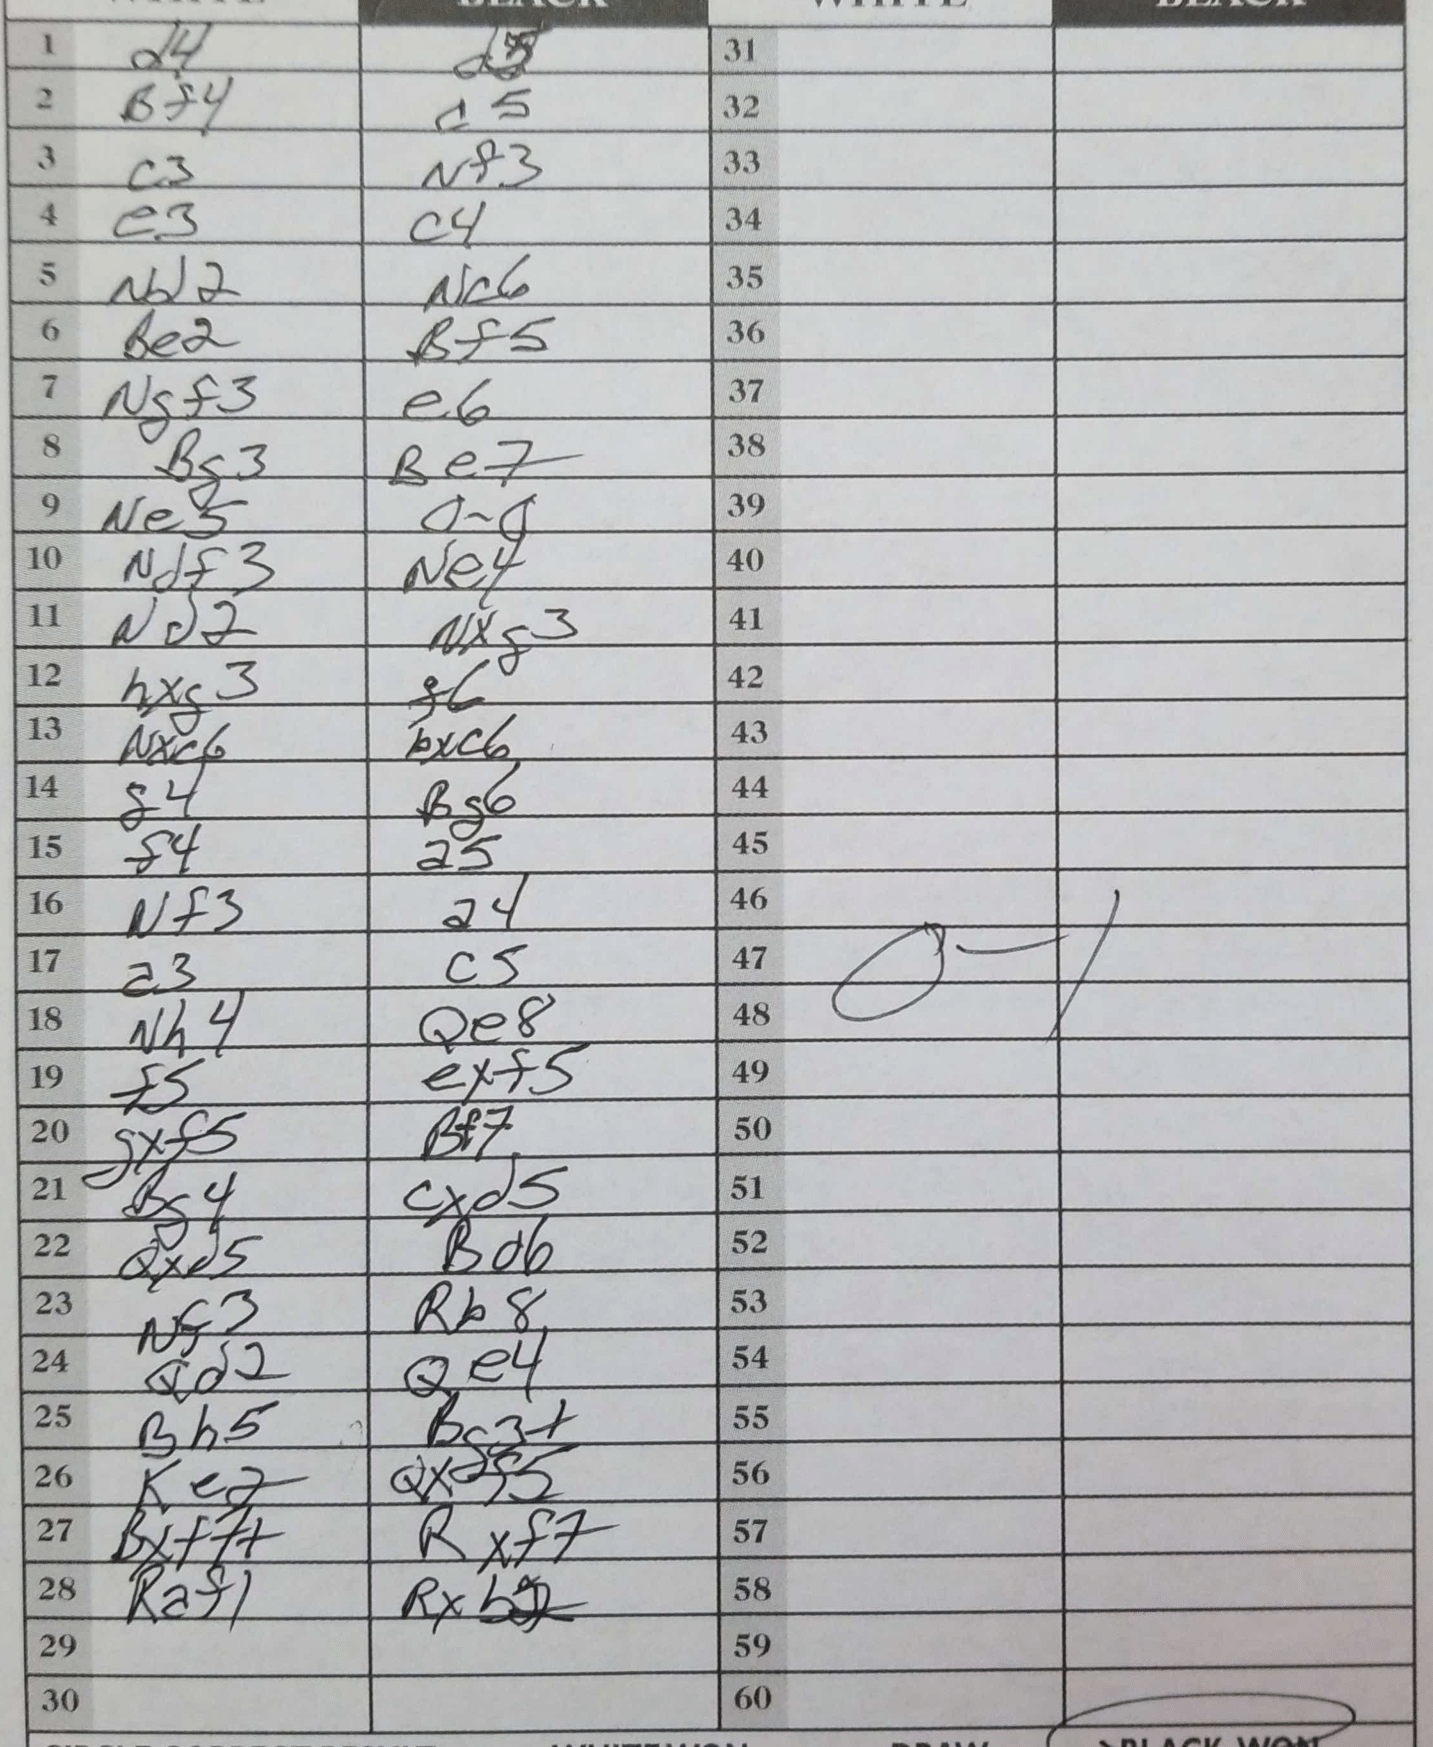 WHITE BLACK WHITE BLACK
1 d4 d5 31
2 Bf4 c5 32
3 c3 Nf3 33
4 e3 c4 34
5 Nbd2 Nc6 35
6 Be2 Bf5 36
7 Ngf3 e6 37
8 Bg3 Be7 38
9 Ne5 0-0 39
10 Ndf3 Ne4 40
11 Nd2 Nxg3 41
12 hxg3 f6 42
13 Nxc6 bxc6 43
14 g4 Bg6 44
15 f4 a5 45
16 Nf3 a4 46
17 a3 c5 47 0-1
18 Nh4 Qe8 48
19 f5 exf5 49
20 gxf5 Bf7 50
21 Bg4 cxd5 51
22 Qxd5 Bd6 52
23 Nf3 Rb8 53
24 Qd2 Qe4 54
25 Bh5 Bg3+ 55
26 Ke2 Qxf5 56
27 Bxf7+ Rxf7 57
28 Raf1 Rxb2 58
29 59
30 60
CIRCLE CORRECT RESULT WHITE WON DRAW BLACK WON